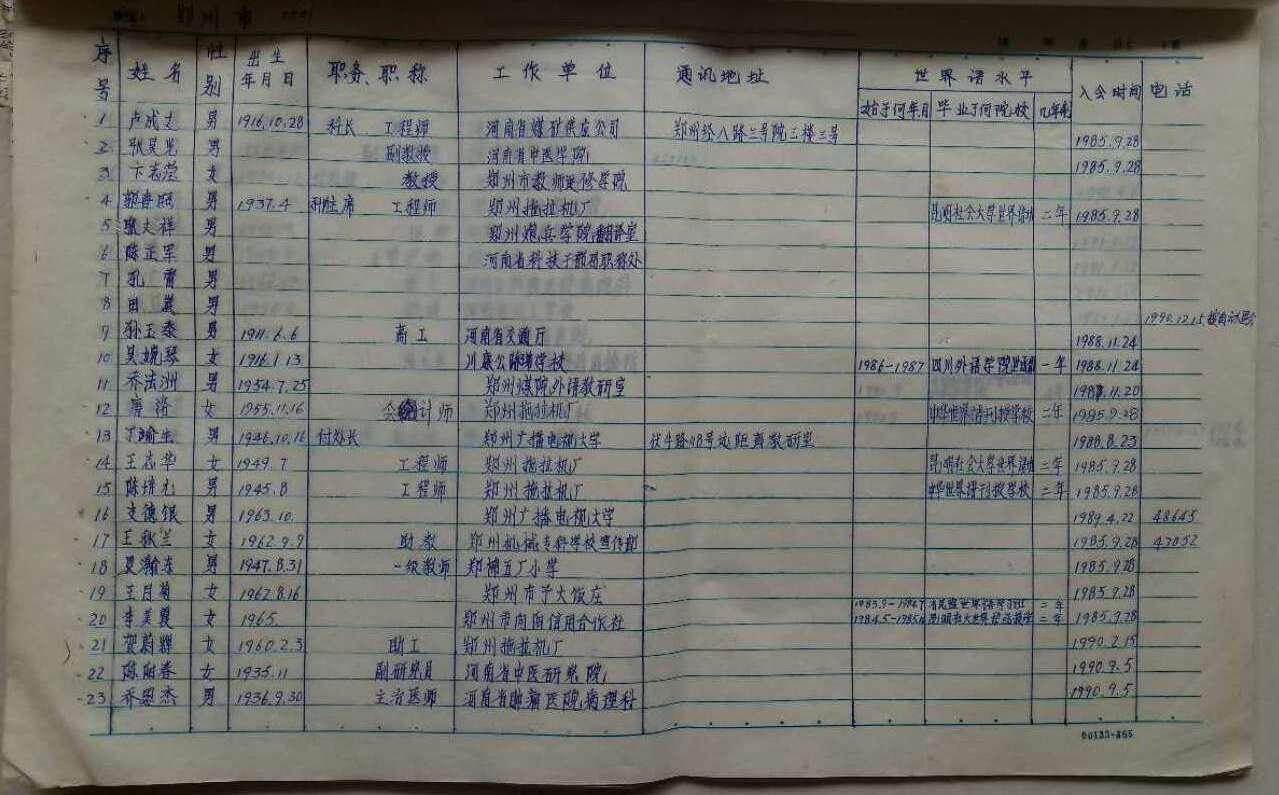 郑州市
序号 姓名 性别 出生年月日 职务、职称 工作单位 通讯地址 世界语水平 入会时间 电话
始于何年月 毕业于何院校 几年制
1 卢成志 男 1916.10.28 科长 工程师 河南省煤矿供应公司 郑州经八路三号院三楼三号 1985.9.28
2 男 副教授 河南省中医学院 1985.9.28
3 卞志莹 女 教授 郑州市教师进修学院
4 男 1937.4 工程师 郑州拖拉机厂 昆明社会大学世界语班 二年 1985.9.28
5 男 郑州炮兵学院翻译室
6 陈正军 男 河南省科技干部局职称处
7 孔雷 男
8 田 男
9 孙玉泰 男 1911.6.6 高工 河南省交通厅 1988.11.24 1990.12.15
10 吴婉琴 女 1916.1.13 1986-1987 四川外语学院 一年 1988.11.24
11 乔法洲 男 1954.7.25 郑州煤院外语教研室 11.20
12 女 1955.11.16 会计师 郑州拖拉机厂 中华世界语刊授学校 二年 1985.9.28
13 丁 男 1946.10.16 付处长 郑州广播电视大学 伏牛路48号 1988.8.23
14 王志华 女 1949.7 工程师 郑州拖拉机厂 昆明社会大学世界语班 二年 1985.9.28
15 陈培 男 1945.8 工程师 郑州拖拉机厂 中华世界语刊授学校 二年 1985.9.28
16 支德银 男 1963.10. 郑州广播电视大学 1989.4.22 48645
17 王秋兰 女 1962.9.9 助教 郑州机械专科学校宣传部 1985.9.28 47052
18 男 1947.8.31 一级教师 郑棉五厂小学 1985.9.28
19 王月菊 女 1962.8.16 郑州市 大饭庄 1985.9.28
20 李美 女 1965. 郑州市向南信用合作社 二年 二年 1985.9.28
21 贺蔚 女 1960.2.3 助工 郑州拖拉机厂 1990.2.15
22 陈阳春 女 1935.11 副研究员 河南省中医研究院 1990.9.5
23 乔思杰 男 1936.9.30 主治医师 河南省肿瘤医院病理科 1990.9.5